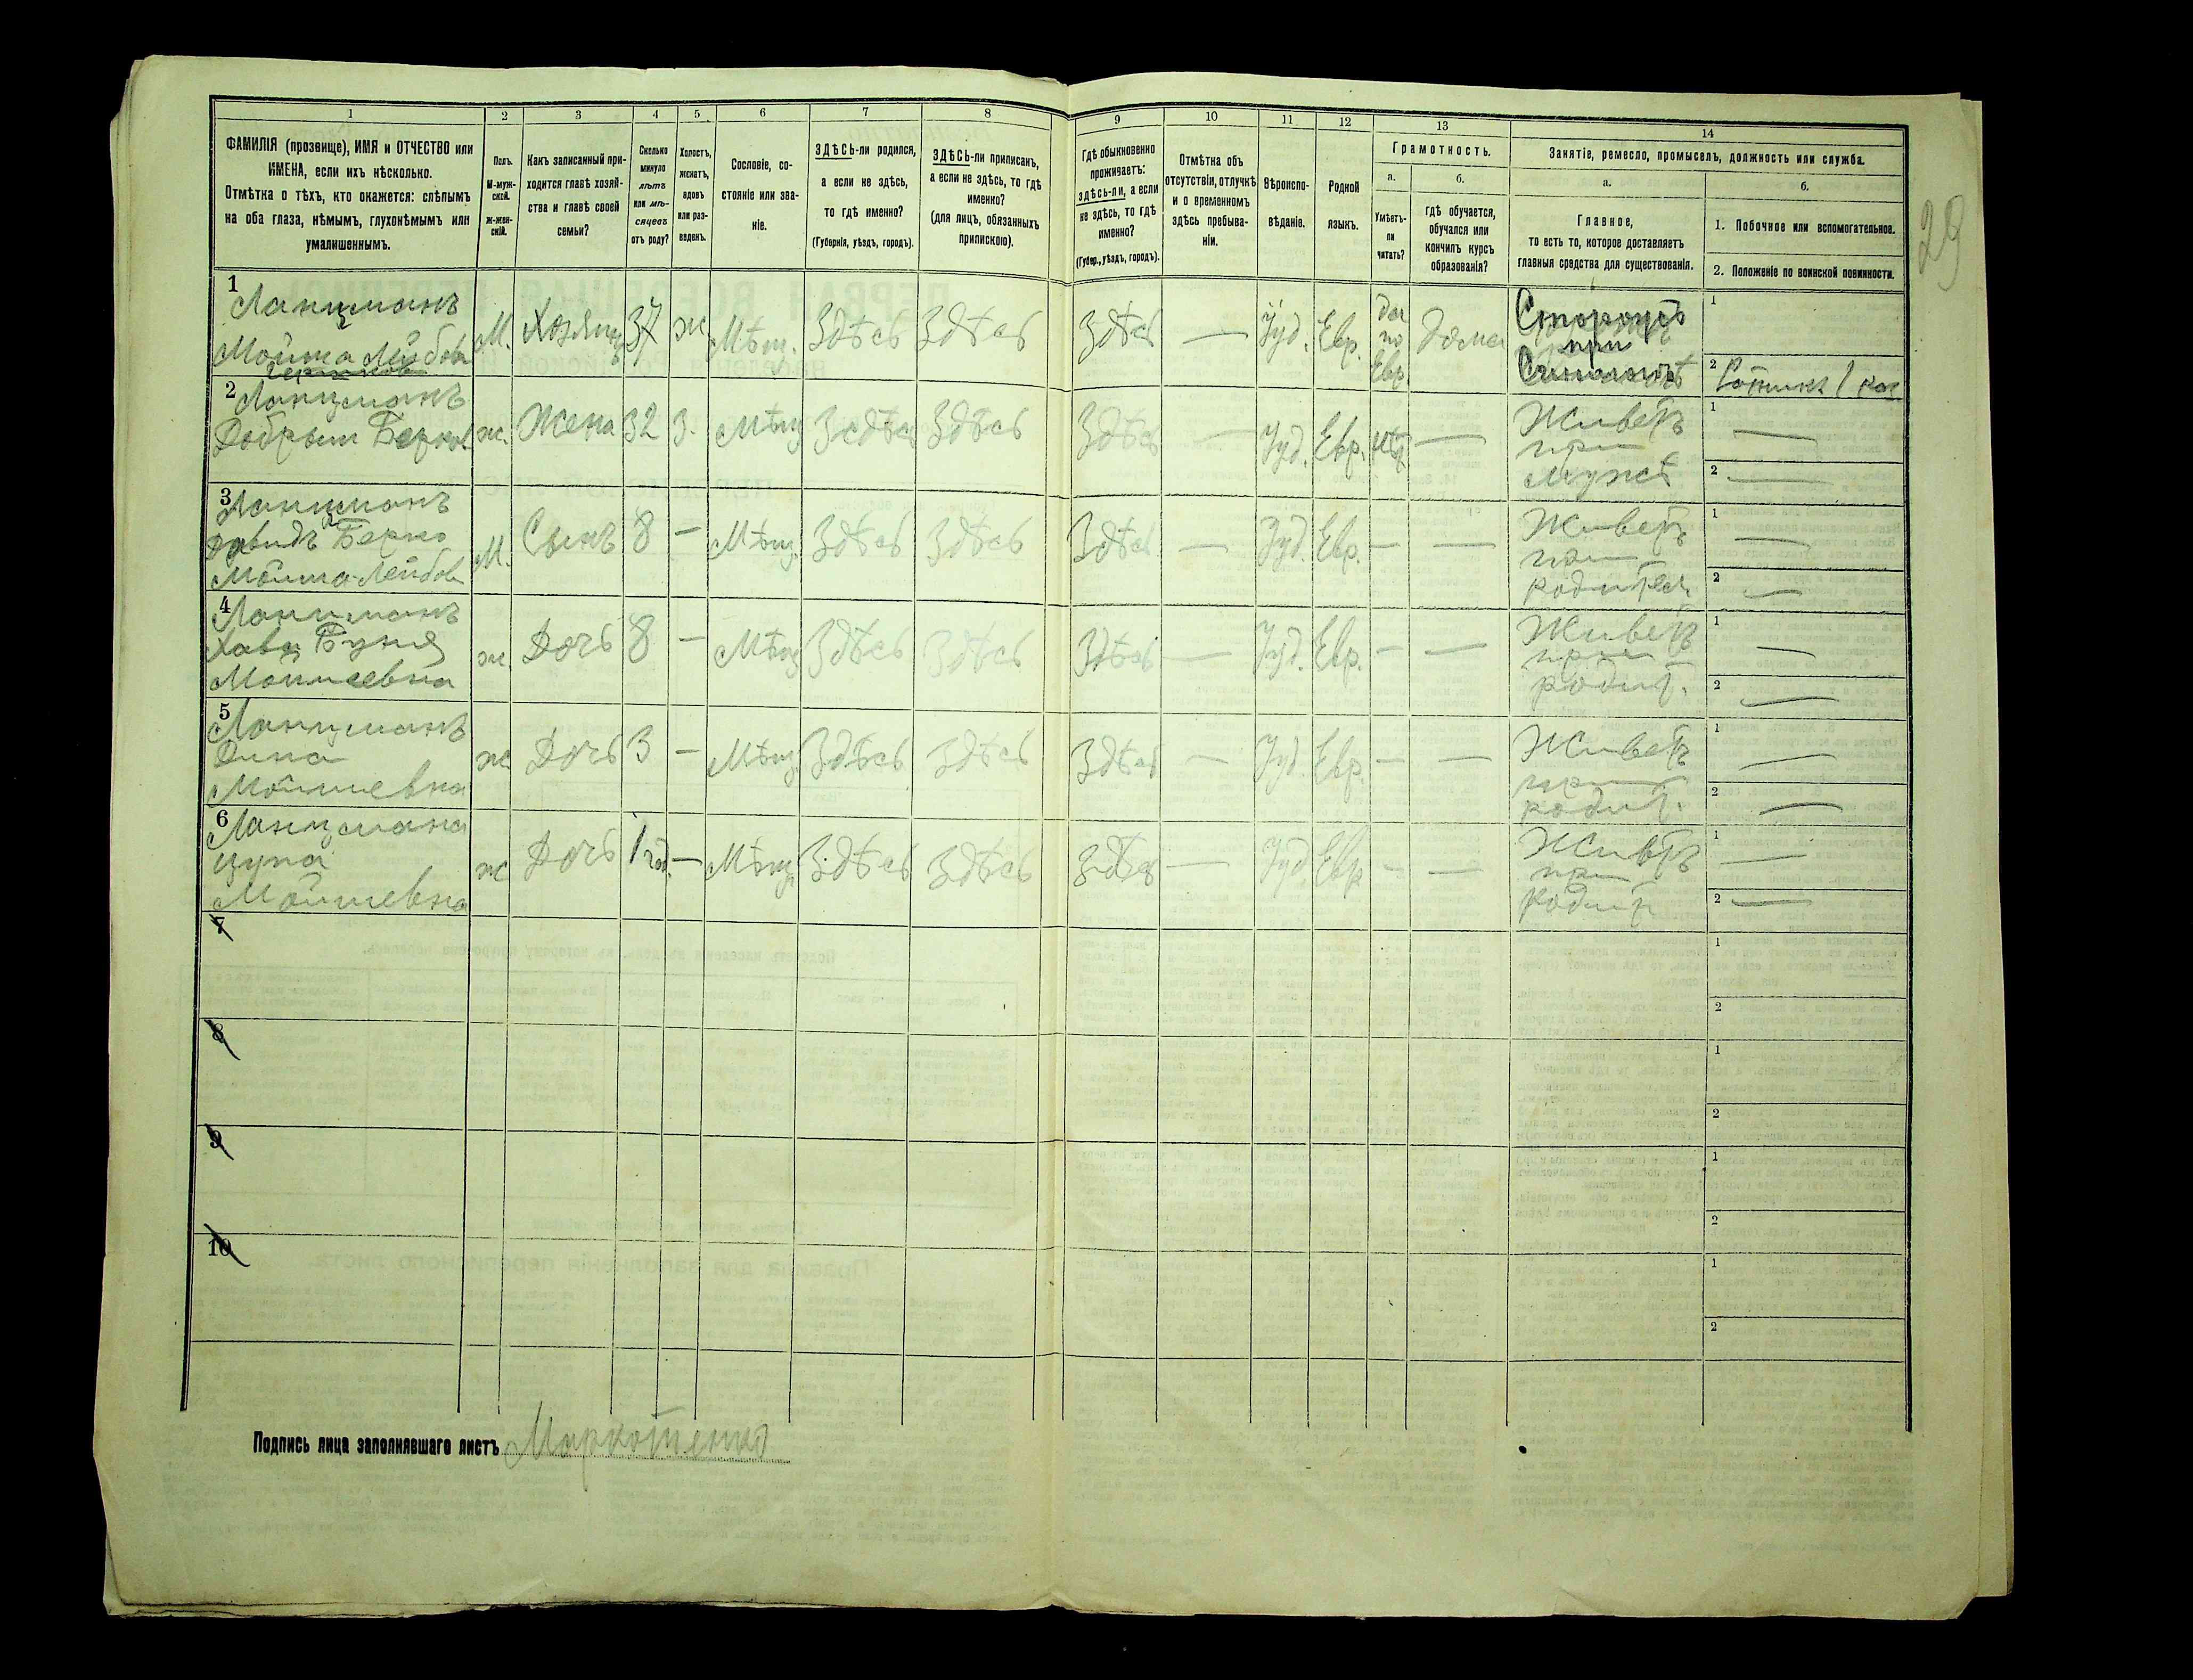 1 2 3 4 5 6 7 8 9 10 11 12 13 14
ФАМИЛІЯ (прозвище), ИМЯ и ОТЧЕСТВО или
ИМЕНА, если ихъ нѣсколько.
Отмѣтка о тѣхъ, кто окажется: слѣпымъ
на оба глаза, нѣмымъ, глухонѣмымъ или
умалишеннымъ.
Полъ.
М-муж-
ской.
ж-жен-
скій.
Какъ записанный при-
ходится главѣ хозяй-
ства и главѣ своей
семьи?
Сколько
минуло
лѣтъ
или мѣ-
сяцевъ
отъ роду?
Холостъ,
женатъ,
вдовъ
или раз-
веденъ.
Сословіе, со-
стояніе или зва-
ніе.
ЗДѢСЬ-ли родился,
а если не здѣсь,
то гдѣ именно?
(Губернія, уѣздъ, городъ).
ЗДѢСЬ-ли приписанъ,
а если не здѣсь, то гдѣ
именно?
(для лицъ, обязанныхъ
припискою).
Гдѣ обыкновенно
проживаетъ:
здѣсь-ли, а если
не здѣсь, то гдѣ
именно?
(Губер., уѣздъ, городъ).
Отмѣтка объ
отсутствіи, отлучкѣ
и о временномъ
здѣсь пребыва-
ніи.
Вѣроиспо-
вѣданіе.
Родной
языкъ.
Грамотность.
а.
Умѣетъ-
ли
читать?
б.
гдѣ обучается,
обучался или
кончилъ курсъ
образованія?
Занятіе, ремесло, промыселъ, должность или служба.
а.
Главное,
то есть то, которое доставляетъ
главныя средства для существованія.
б.
1. Побочное или вспомогательное.
2. Положеніе по воинской повинности.
29
1
Ланцманъ
Мойша Лейбовъ
М. Хозяинъ 37 ж Мѣщ. Здѣсь Здѣсь Здѣсь — Іуд. Евр.
Да
по
Евр.
Дома
Сторожъ
при
1
2
2
Ланцманъ
Добрыш Берков.
ж. Жена 32 З. Мѣщ Здѣсь Здѣсь Здѣсь — Іуд. Евр. Нѣт —
Живетъ
при
мужѣ
1 —
2 —
3
Ланцманъ
Давидъ Берко
Мойша-Лейбов
М. Сынъ 8 — Мѣщ. Здѣсь Здѣсь Здѣсь — Іуд. Евр. — —
Живетъ
при
родител.
1 —
2 —
4
Ланцманъ
Хава Буня
Мойшевна
ж. Дочь 8 — Мѣщ Здѣсь Здѣсь Здѣсь — Іуд. Евр. — —
Живетъ
при
родит.
1 —
2 —
5
Ланцманъ
Дина
Мойшевна
ж Дочь 3 — Мѣщ. Здѣсь Здѣсь Здѣсь — Іуд. Евр. — —
Живетъ
при
родит.
1 —
2 —
6
Ланцмана
Цупа
Мойшевна
ж Дочь 1 год. — Мѣщ. Здѣсь Здѣсь Здѣсь — Іуд. Евр — —
Живетъ
при
родит
1 —
2 —
7
1
2
8
1
2
9
1
2
10
1
2
Подпись лица заполнявшаго листъ